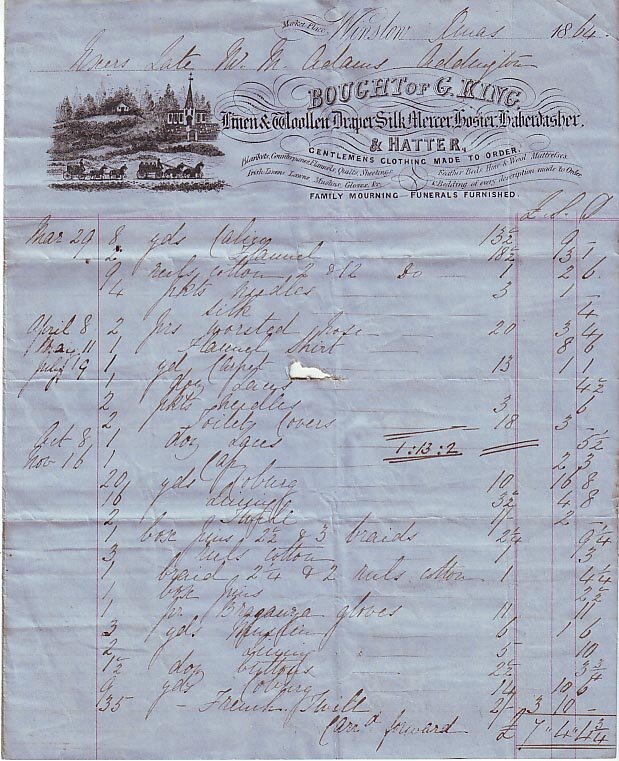 Market Place Winslow Xmas 1864
Late Mr M. Adams Addington
BOUGHT OF G. KING,
Linen & Woollen Draper Silk Mercer Hosier Haberdasher.
& HATTER,
GENTLEMENS CLOTHING MADE TO ORDER.
Blankets, Counterpanes, Flannels, Quilts, Sheetings,
Irish Linens Lawns Muslins, Gloves, &c.
Feather Beds Hair & Wool Mattrefses.
& Bedding of every description made to Order.
FAMILY MOURNING FUNERALS FURNISHED.
£ S D
Mar 29 8 yds Calico 13½ 9 -
Flannel 18½ 13 1
9 reels cotton 2 & 12 do 1 2 6
4 pkts needles 3 1 -
Silk 4
April 8 2 prs worsted hose 20 3 4
May 11 1 Flannel Shirt 8 6
July 19 1 yd 13 1 1
1 doz Laces 4½
2 pkts needles 3 6
2 Toilet Covers 18 3
Oct 8 1 doz Laces 5½
1:13:2
Nov 16 1 Cap 2 3
20 yds Coburg 10 16 8
16 Lining 3½ 4 8
2 1/- 2
1 box pins 2½ & 3 braids 2¼ 9¼
3 reels cotton 1 3
1 braid 2¼ & 2 reels cotton 1 4¼
1 box pins 2½
1 pr Braganza gloves 11 11
3 yds Muslin 6 1 6
2 Lining 5 10
1½ doz buttons 2½ 3¾
9 yds Coburg 14 10 6
35 - French Twill 2/- 3 10 -
Carrd forward 7 " 4 " 4¾